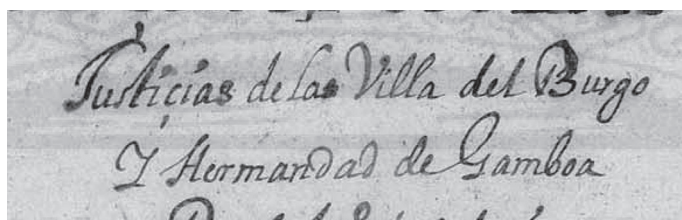 Justicias de las Villa del Burgo
Y Hermandad de Gamboa